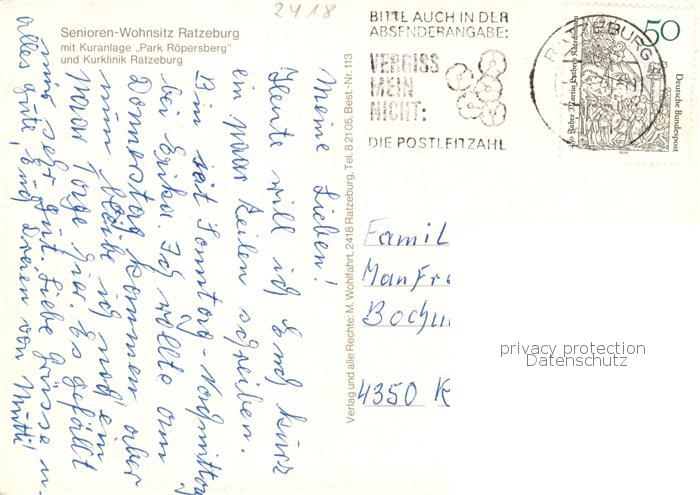 2418
Senioren-Wohnsitz Ratzeburg
mit Kuranlage „Park Röpersberg"
und Kurklinik Ratzeburg
Meine Lieben!
Heute will ich Euch kurz
ein paar Zeilen schreiben.
Bin seit Sonntag-Nachmittag
bei Erika. Ich wollte am
Donnerstag kommen aber
nun bleibe ich noch ein
paar Tage hier. Es gefällt
mir sehr gut. Liebe Grüsse u.
alles gute, Euch Dreien von Mutti!
Verlag und alle Rechte: M. Wohlfahrt, 2418 Ratzeburg, Tel. B 2105, Best.-Nr. 113
BITTE AUCH IN DER
ABSENDERANGABE:
VERGISS
MEIN
NICHT:
DIE POSTLEITZAHL
RATZEBURG
50
Deutsche Bundespost
Famil
Manfr
Bochu
4350 R
privacy protection
Datenschutz